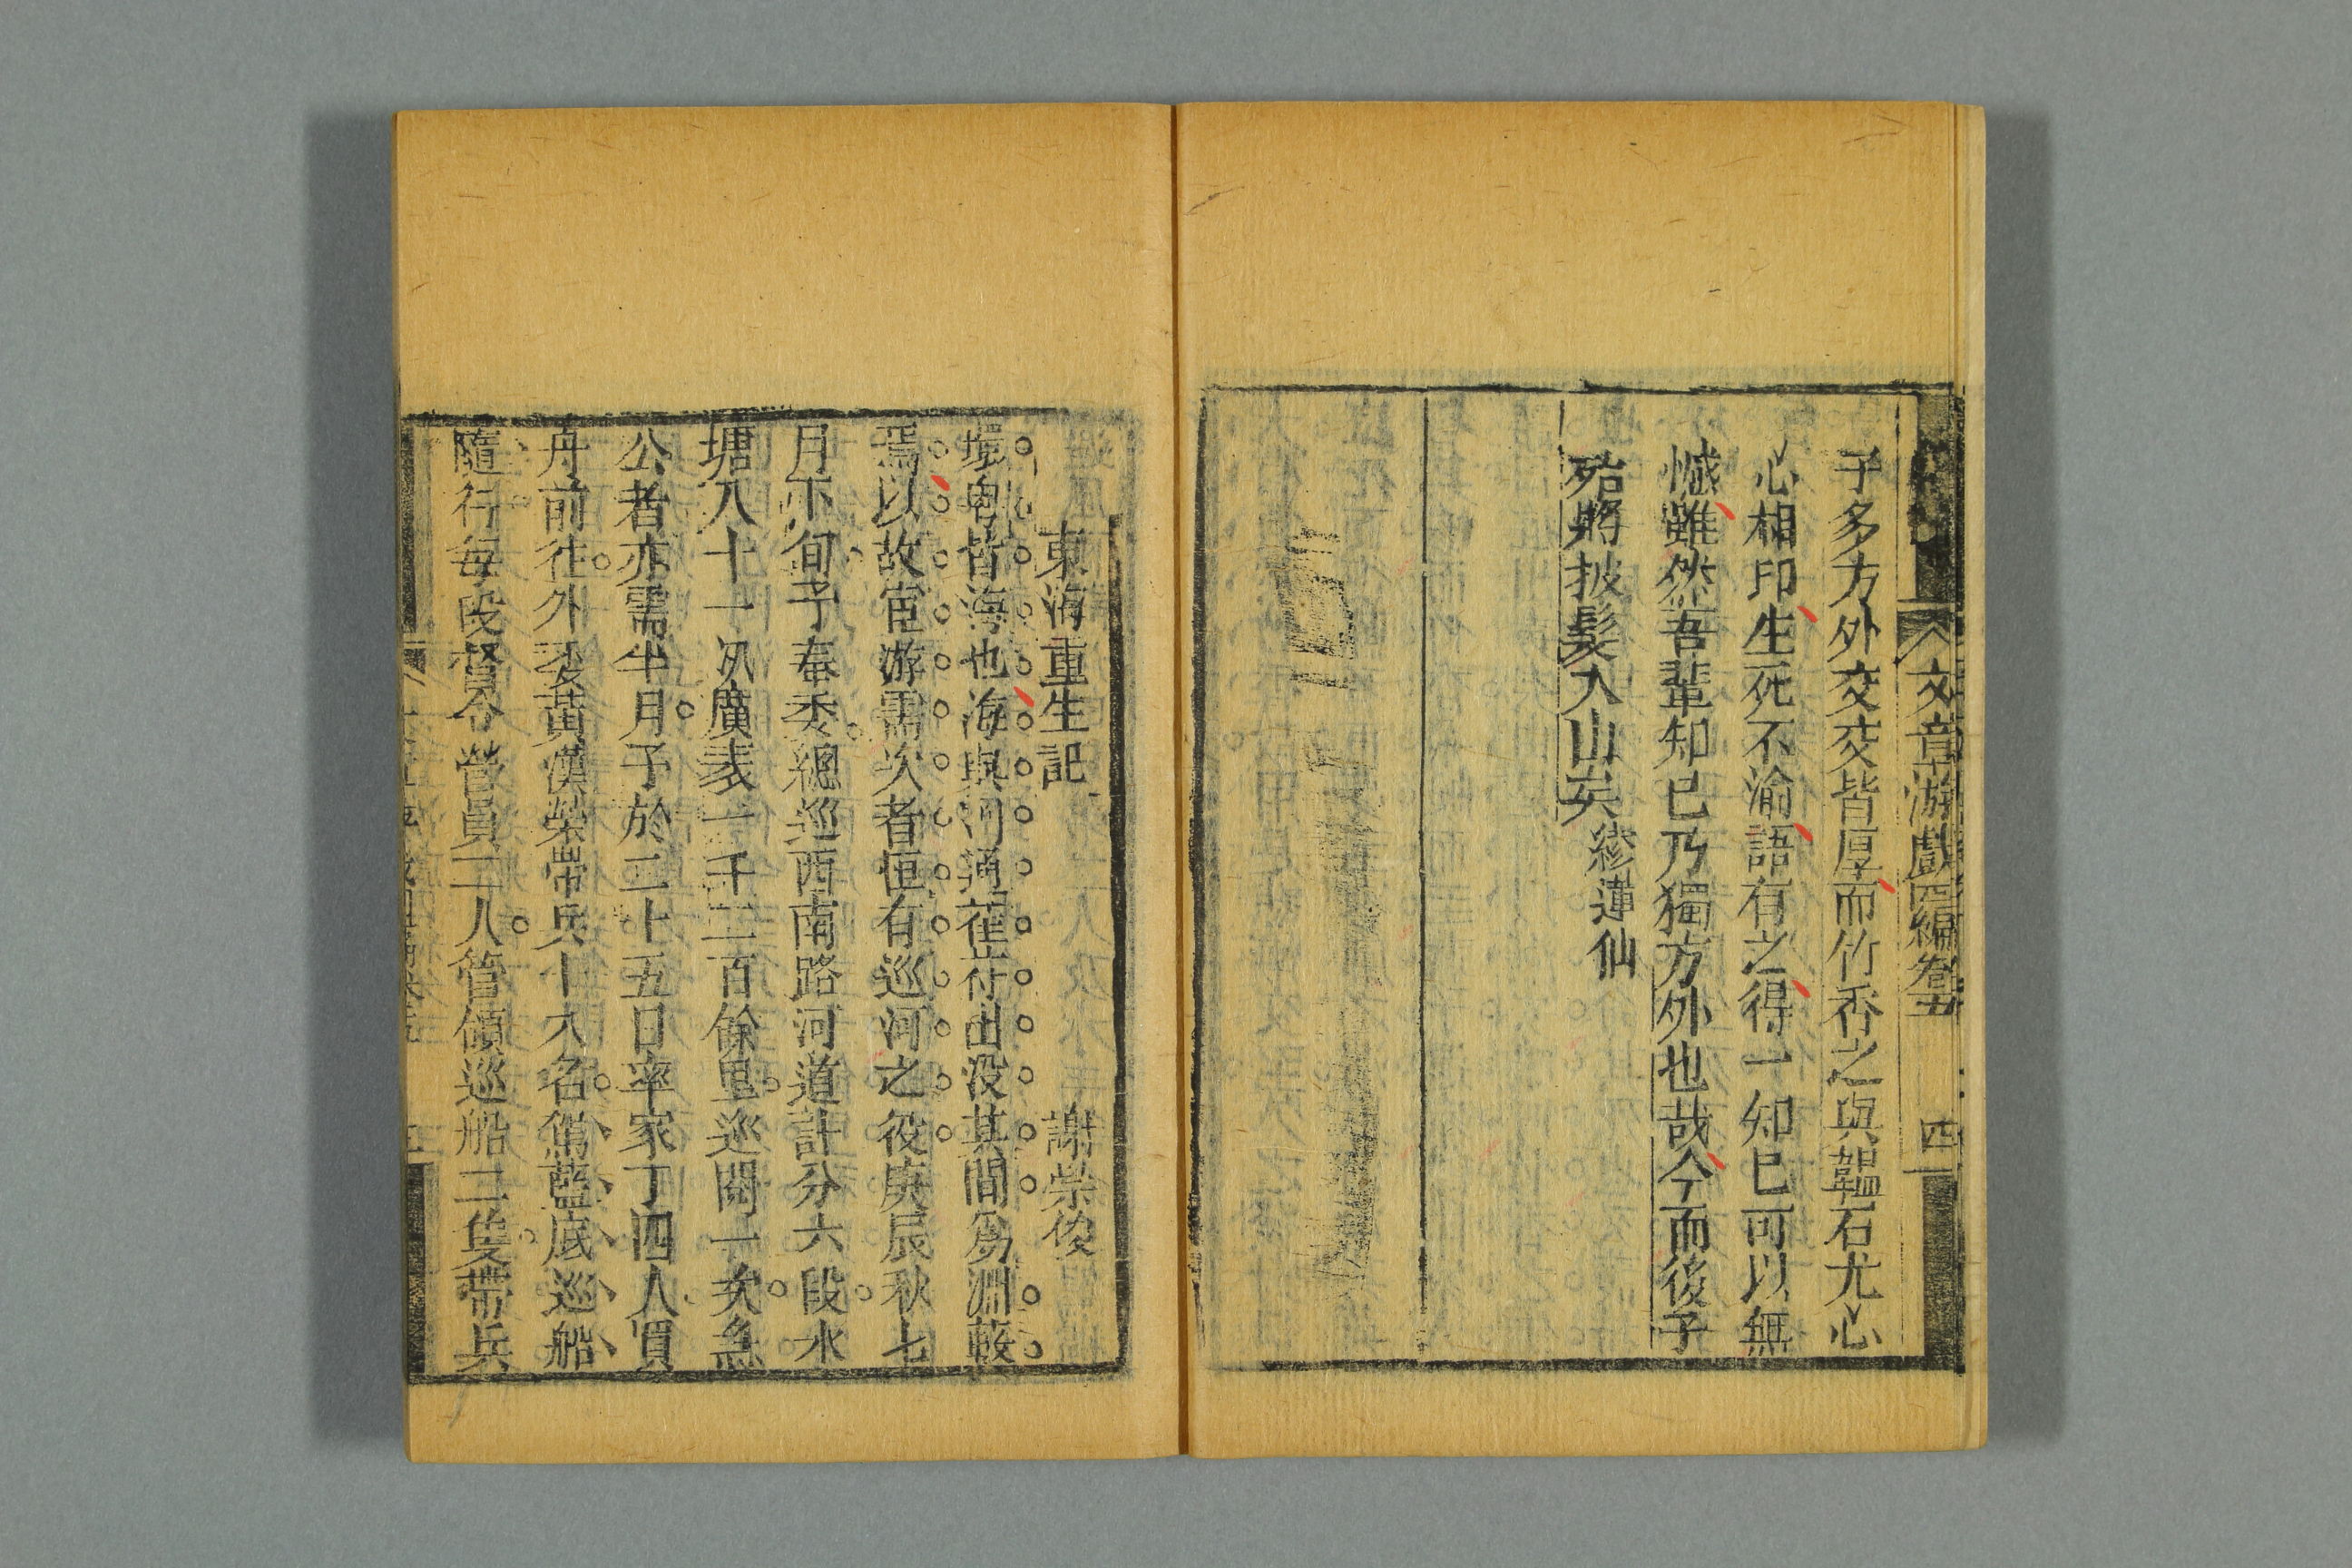 文章游戲四編卷五 四
予多方外交交皆厚而竹香之與韞石尤心
心相印生死不渝語有之得一知已可以無
憾雖然吾輩知已乃獨方外也哉今而後予
殆將披髮入山矣 繆蓮仙
東海重生記 謝榮俊
環粵皆海也海與河通萑苻出没其間爲淵藪
焉以故宦游需次者恒有巡河之役庚辰秋七
月下旬予奉委總巡西南路河道計分六段水
塘八十一夘廣袤一千二百餘里巡閱一次急
公者亦需半月予於二十五日率家丁四人買
舟前往外委黃漢榮帶兵十八名駕藍底巡船
隨行每段督令營員一人管領巡船二隻帶兵